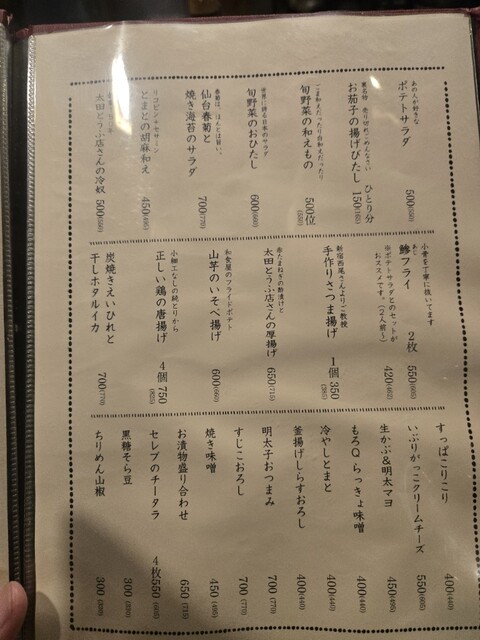 あの人が好きな
ポテトサラダ
500(550)
売り切れごめんなさい
お茄子の揚げびたし
ひとり分
150(165)
ごま和えだったり白和えだったり
旬野菜の和えもの
500位
(550)
世界に誇る日本のサラダ
旬野菜のおひたし
600(660)
春菊は、ほんとは旨い。
仙台春菊と
焼き海苔のサラダ
700(770)
リコピン&セサミン
とまとの胡麻和え
450(495)
太田とうふ店さんの冷奴
500(550)
小骨を丁寧に抜いてます
鯵フライ
あじ
2枚 550(605)
※ポテトサラダとのセットが
おススメです。(2人前〜)
420(462)
新宿西尾さんよりご教授
手作りさつま揚げ
1個 350
(385)
赤たまねぎの酢漬けと
太田とうふ店さんの厚揚げ
650(715)
和食屋のフライドポテト
山芋のいそべ揚げ
600(660)
小細工なしの純とりから
正しい鶏の唐揚げ
4個 750
(825)
炭焼きえいひれと
干しホタルイカ
700(770)
すっぱこりこり
400(440)
いぶりがっこクリームチーズ
550(605)
生かぶ&明太マヨ
450(495)
もろQ らっきょ味噌
400(440)
冷やしとまと
400(440)
釜揚げしらすおろし
400(440)
明太子おつまみ
700(770)
すじこおろし
700(770)
焼き味噌
450(495)
お漬物盛り合わせ
650(715)
セレブのチータラ
4枚550(605)
黒糖そら豆
300(330)
ちりめん山椒
300(330)